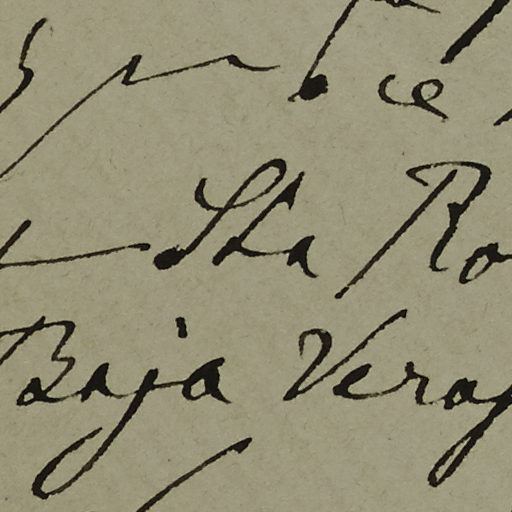 ce
Sta Ro
Baja Verap